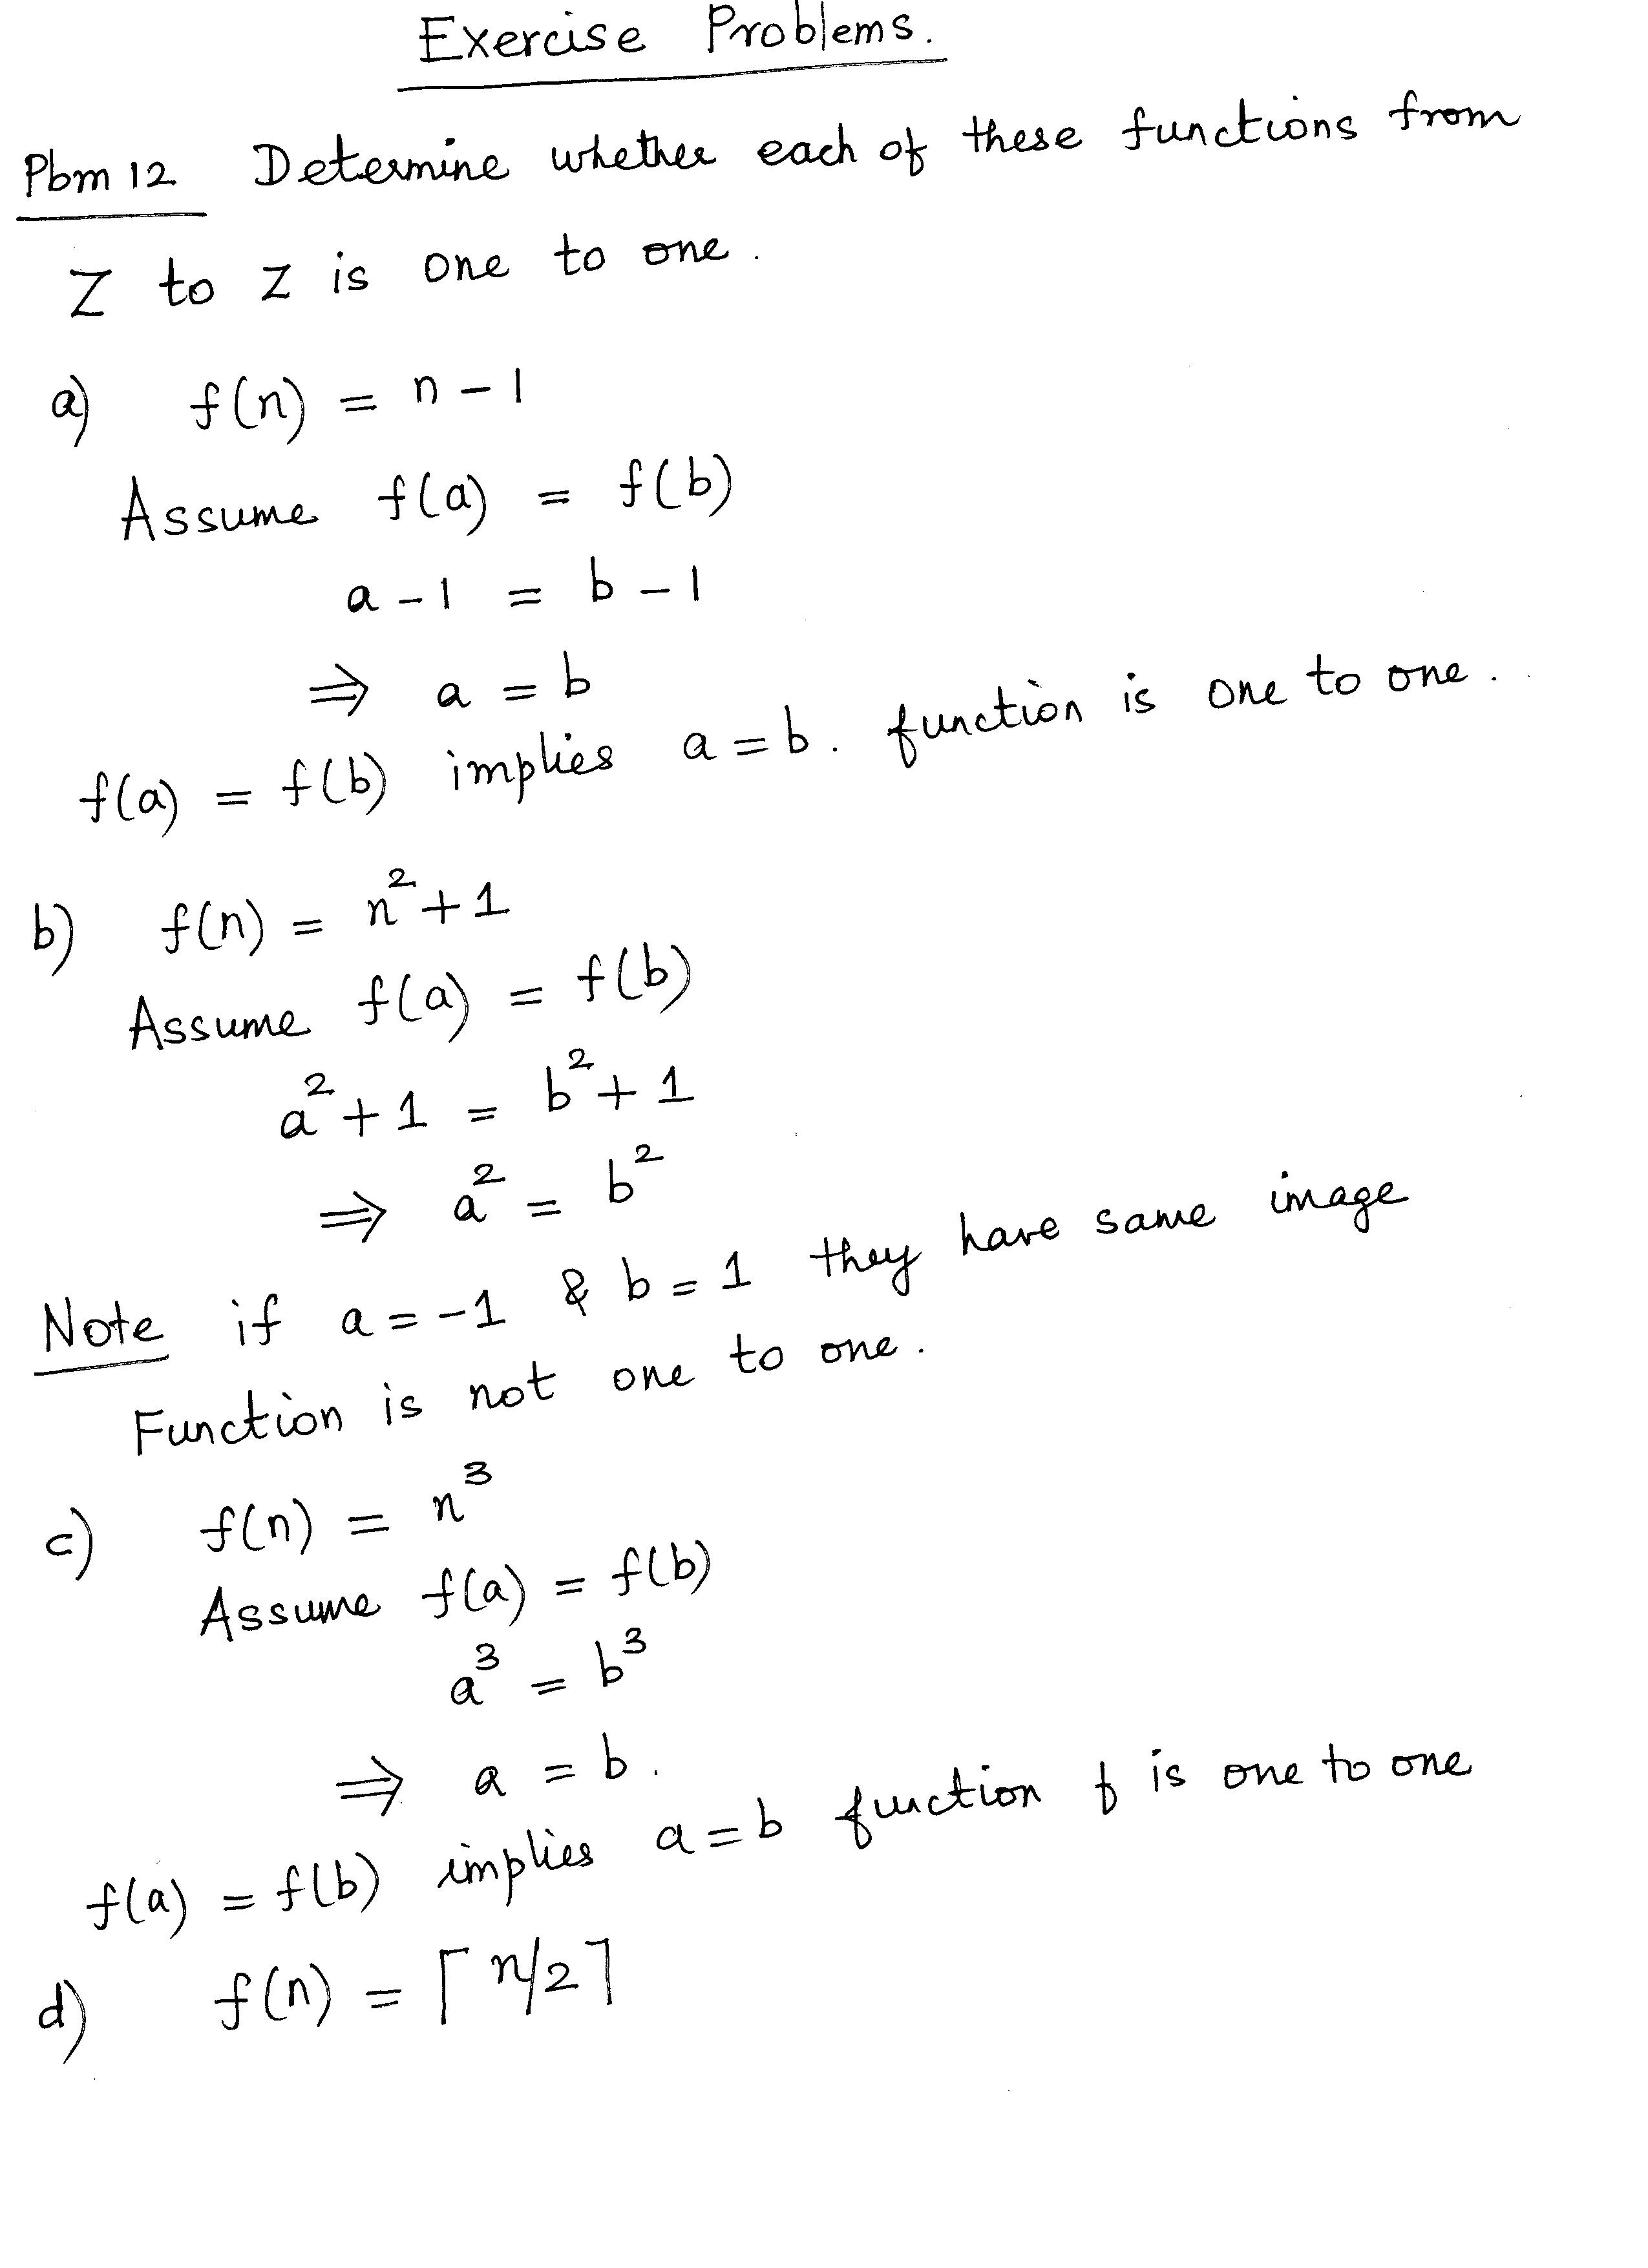 Exercise Problems.
Pbm 12 Determine whether each of these functions from
Z to Z is one to one.
a) f(n) = n - 1
Assume f(a) = f(b)
a - 1 = b - 1
⇒ a = b
f(a) = f(b) implies a = b. function is one to one.
b) f(n) = n² + 1
Assume f(a) = f(b)
a² + 1 = b² + 1
⇒ a² = b²
Note if a = -1 & b = 1 they have same image
Function is not one to one.
c) f(n) = n³
Assume f(a) = f(b)
a³ = b³
⇒ a = b.
f(a) = f(b) implies a = b function f is one to one
d) f(n) = ⌈n/2⌉